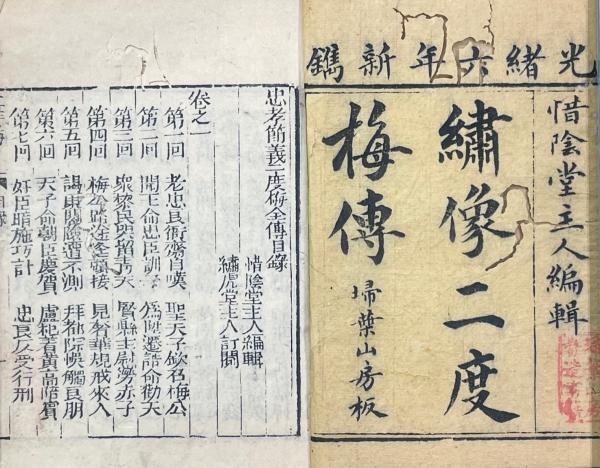 光緒六年新鐫
惜陰堂主人編輯
繡像二度
梅傳
埽葉山房板
忠孝節義二度梅全傳目錄
惜陰堂主人編輯
繡虎堂主人訂閱
卷之一
第一回 老忠良衙齋自嘆 聖天子欽召梅公
第二回 聞王命忠臣訓子 為陞遷誥命勸夫
第三回 眾黎民跪留青天 賢縣主慰勞赤子
第四回 梅公路途逢迎接 見奢華規戒來人
第五回 謁東閣 遭不測 拜都院候觸良朋
第六回 天子命朝臣慶賀 盧杞著黃嵩賠賓
第七回 奸臣暗施巧計 忠良反受行刑